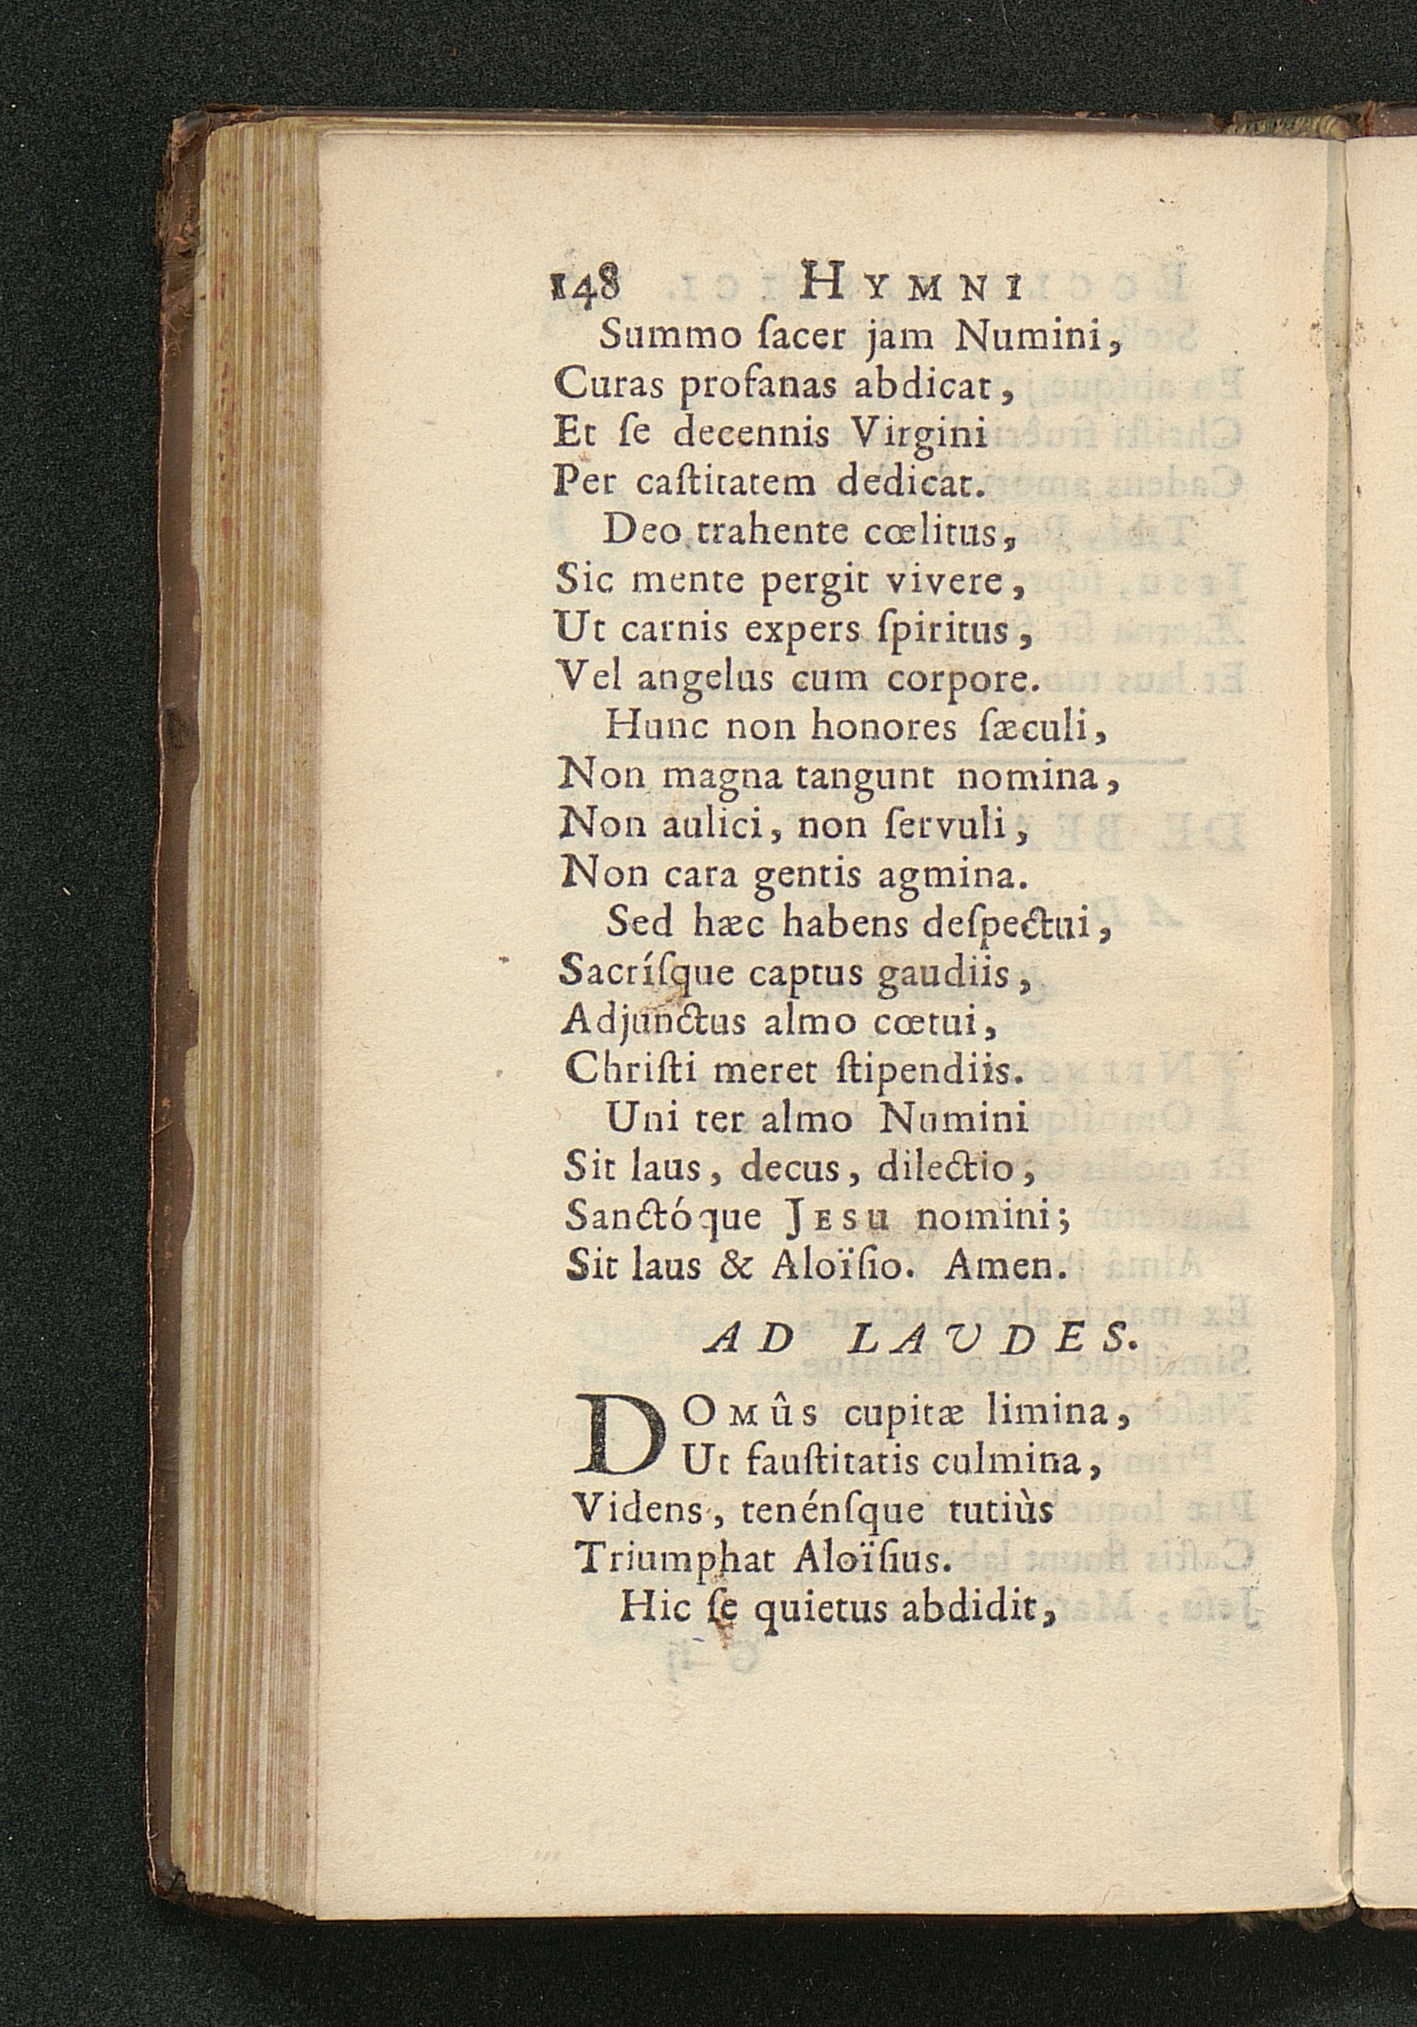 148 HYMNI
Summo ſacer jam Numini,
Curas profanas abdicat,
Et ſe decennis Virgini
Per caſtitatem dedicat.
Deo trahente cœlitus,
Sic mente pergit vivere,
Ut carnis expers ſpiritus,
Vel angelus cum corpore.
Hunc non honores ſæculi,
Non magna tangunt nomina,
Non aulici, non ſervuli,
Non cara gentis agmina.
Sed hæc habens deſpectui,
Sacríſque captus gaudiis,
Adjunctus almo cœtui,
Chriſti meret ſtipendiis.
Uni ter almo Numini
Sit laus, decus, dilectio,
Sanctóque JESU nomini;
Sit laus & Aloïſio. Amen.
AD LAUDES.
DOMÛS cupitæ limina,
Ut fauſtitatis culmina,
Videns, tenénſque tutiùs
Triumphat Aloïſius.
Hic ſe quietus abdidit,